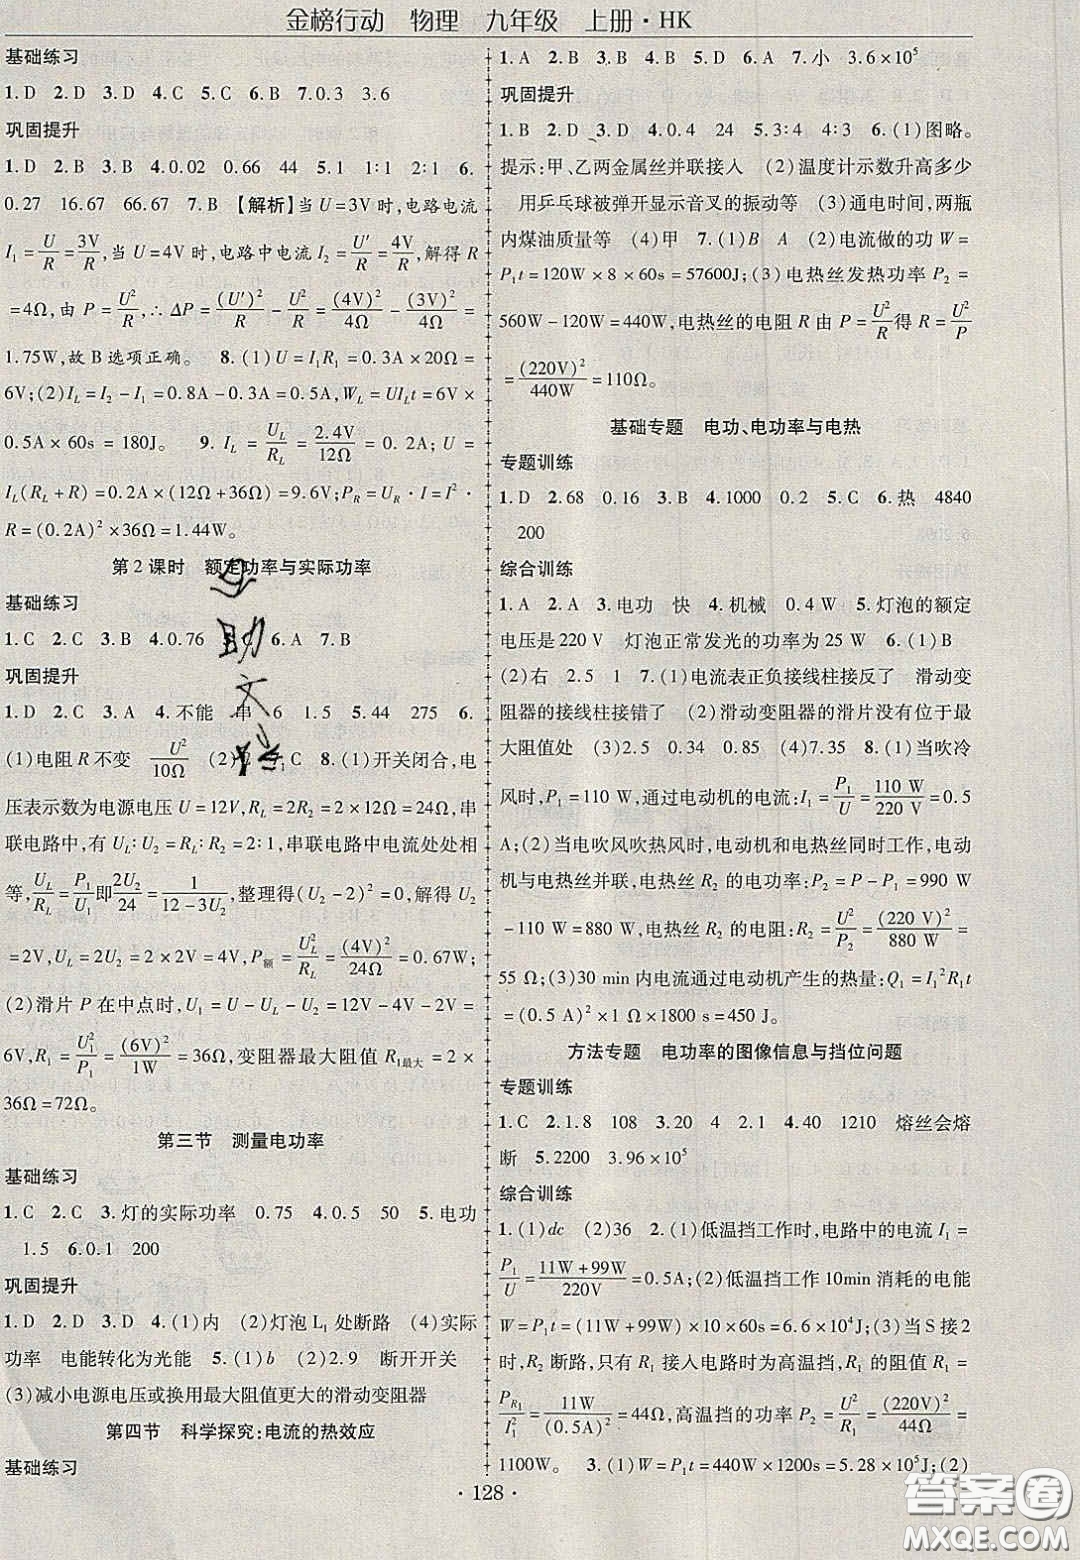 金榜行动 物理 九年级 上册·HK
基础练习
1.D 2.D 3.D 4.C 5.C 6.B 7.0.3 3.6
巩固提升
1.D 2.B 3.B 4.0.02 0.66 44 5.1∶1 2∶1 6.
0.27 16.67 66.67 7.B 【解析】当U=3V时,电路电流
I₁=U/R=3V/R,当U=4V时,电路中电流I₂=U′/R=4V/R,解得R
=4Ω,由P=U²/R,∴ΔP=(U′)²/R-U²/R=(4V)²/4Ω-(3V)²/4Ω=
1.75W,故B选项正确。 8.(1)U=I₁R₁=0.3A×20Ω=
6V;(2)I_L=I₂-I₁=0.8A-0.3A=0.5A,W_L=UI_Lt=6V×
0.5A×60s=180J。 9.I_L=U_L/R_L=2.4V/12Ω=0.2A;U=
I_L(R_L+R)=0.2A×(12Ω+36Ω)=9.6V;P_R=U_R·I=I²·
R=(0.2A)²×36Ω=1.44W。
第2课时 额定功率与实际功率
基础练习
1.C 2.C 3.B 4.0.76 5.C 6.A 7.B
巩固提升
1.D 2.D 3.A 4.不能 串 6 1.5 5.44 275 6.
(1)电阻R不变 U²/10Ω (2) C 8.(1)开关闭合,电
压表示数为电源电压U=12V,R_L=2R₂=2×12Ω=24Ω,串
联电路中,有U_L∶U₂=R_L∶R₂=2∶1,串联电路中电流处处相
等,U_L/R_L=P₁/U₁即2U₂/24=1/(12-3U₂),整理得(U₂-2)²=0,解得U₂
=2V,U_L=2U₂=2×2V=4V,P额=U_L²/R_L=(4V)²/24Ω=0.67W;
(2)滑片P在中点时,U₁=U-U_L-U₂=12V-4V-2V=
6V,R₁=U₁²/P₁=(6V)²/1W=36Ω,变阻器最大阻值R₁最大=2×
36Ω=72Ω。
第三节 测量电功率
基础练习
1.C 2.C 3.灯的实际功率 0.75 4.0.5 50 5.电功
1.5 6.0.1 200
巩固提升
1.D 2.D 3.D 4.(1)内 (2)灯泡L₁处断路 (4)实际
功率 电能转化为光能 5.(1)b (2)2.9 断开开关
(3)减小电源电压或换用最大阻值更大的滑动变阻器
第四节 科学探究:电流的热效应
基础练习
1.A 2.B 3.B 4.B 5.D 6.A 7.小 3.6×10⁵
巩固提升
1.B 2.D 3.D 4.0.4 24 5.3∶4 4∶3 6.(1)图略。
提示:甲、乙两金属丝并联接入 (2)温度计示数升高多少
用乒乓球被弹开显示音叉的振动等 (3)通电时间,两瓶
内煤油质量等 (4)甲 7.(1)B A (2)电流做的功W=
P₁t=120W×8×60s=57600J;(3)电热丝发热功率P₂=
560W-120W=440W,电热丝的电阻R由P=U²/R得R=U²/P
=(220V)²/440W=110Ω。
基础专题 电功、电功率与电热
专题训练
1.D 2.68 0.16 3.B 4.1000 0.2 5.C 6.热 4840
200
综合训练
1.A 2.A 3.电功 快 4.机械 0.4 W 5.灯泡的额定
电压是220 V 灯泡正常发光的功率为25 W 6.(1)B
(2)右 1 25 7.(1)电流表正负接线柱接反了 滑动变
阻器的接线柱接错了 (2)滑动变阻器的滑片没有位于最
大阻值处 (3)2.5 0.34 0.85 (4)7.35 8.(1)当吹冷
风时,P₁=110 W,通过电动机的电流:I₁=P₁/U=110 W/220 V=0.5
A;(2)当电吹风吹热风时,电动机和电热丝同时工作,电动
机与电热丝并联,电热丝R₂的电功率:P₂=P-P₁=990 W
-110 W=880 W,电热丝R₂的电阻:R₂=U²/P₂=(220 V)²/880 W=
55 Ω;(3)30 min内电流通过电动机产生的热量:Q₁=I₁²R₁t
=(0.5 A)²×1 Ω×1800 s=450 J。
方法专题 电功率的图像信息与挡位问题
专题训练
1.C 2.1.8 108 3.20 4 2.1 4.40 1210 熔丝会熔
断 5.2200 3.96×10⁵
综合训练
1.(1)dc (2)36 2.(1)低温挡工作时,电路中的电流I₁=
P₁/U=(11W+99W)/220V=0.5A;(2)低温挡工作10min消耗的电能
W=P₁t=(11W+99W)×10×60s=6.6×10⁴J;(3)当S接2
时,R₂断路,只有R₁接入电路时为高温挡,R₁的阻值R₁=
P_R₁/I₁²=11W/(0.5A)²=44Ω,高温挡的功率P₂=U²/R₁=(220V)²/44Ω=
1100W。 3.(1)W=P₁t=440W×1200s=5.28×10⁵J;(2)
·128·
答案圈
MXQE.COM